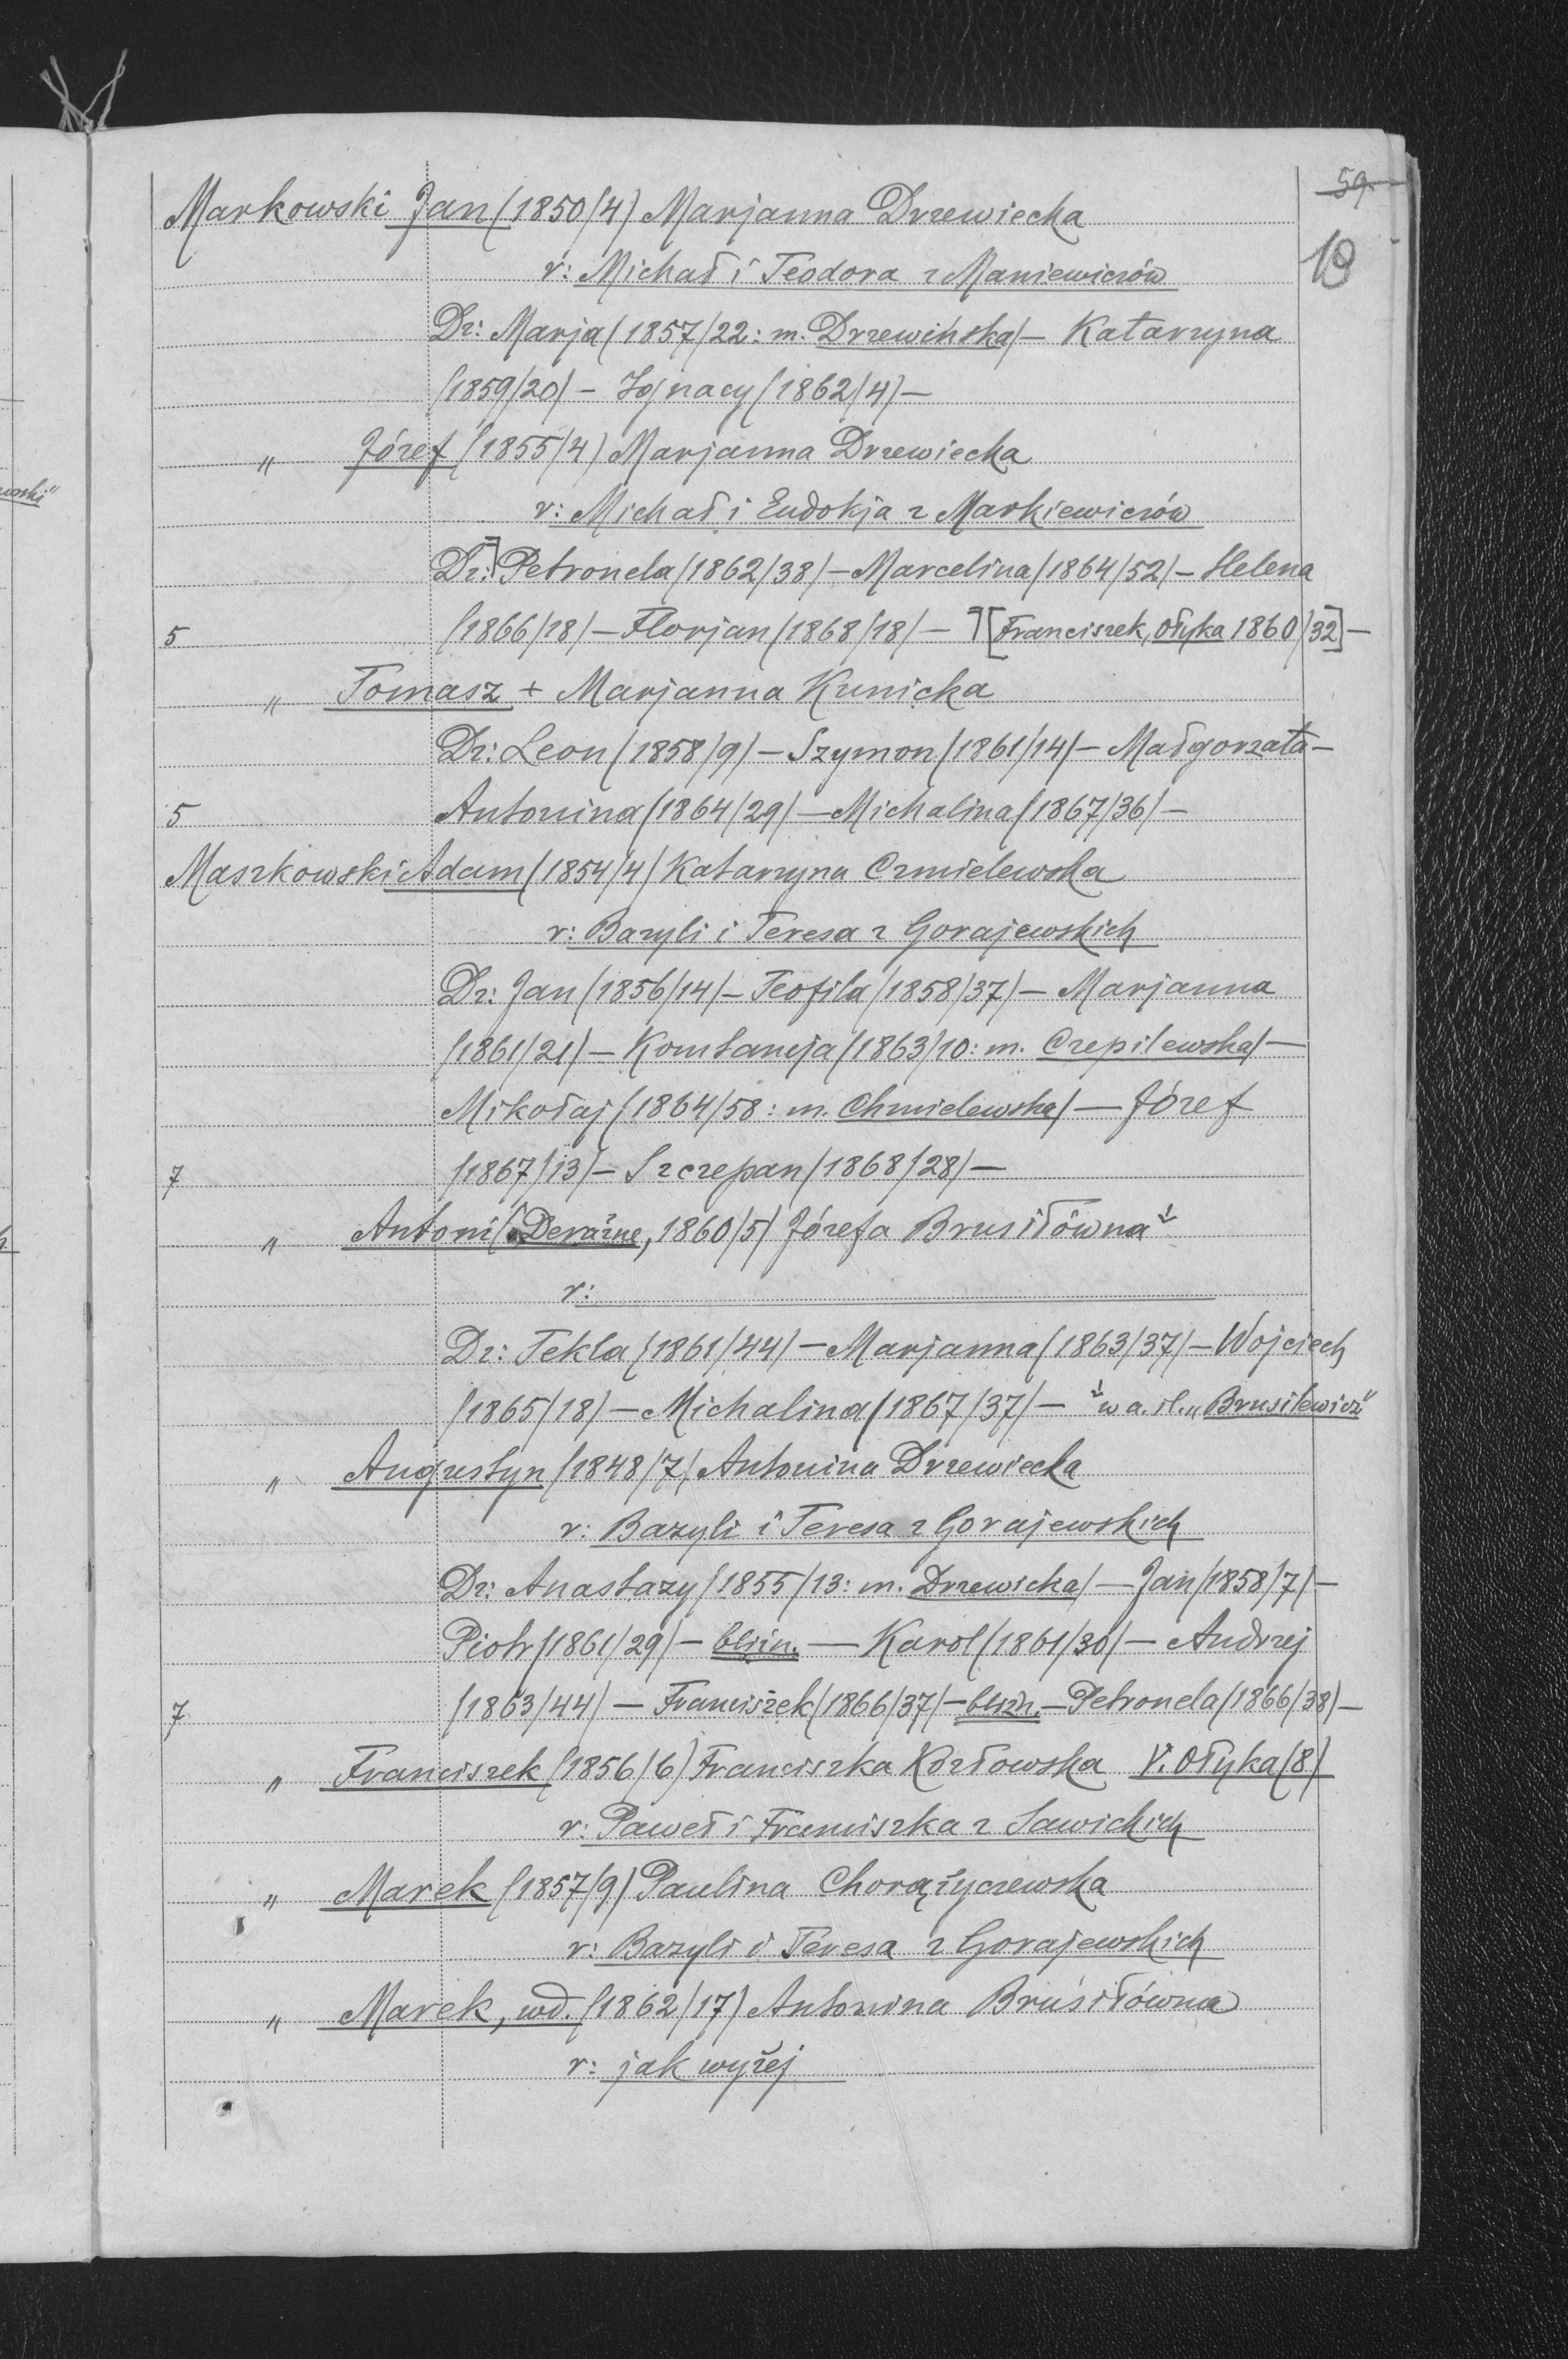 59.
19
Markowski Jan (1850/4) Marjanna Drzewiecka
r: Michał i Teodora z Maniewiczów
Dz: Marja (1857/22: m. Drzewińska) – Katarzyna
(1859/20) – Ignacy (1862/4) –
„ Józef (1855/4) Marjanna Drzewiecka
r: Michał i Eudokja z Markiewiczów
Dz: ⁊ Petronela (1862/38) – Marcelina (1864/52) – Helena
5 (1866/18) – Florjan (1868/18) – ⁊ [Franciszek, Ołyka 1860/32] –
„ Tomasz + Marjanna Kunicka
Dz: Leon (1858/9) – Szymon (1861/14) – Małgorzata –
5 Antonina (1864/29) – Michalina (1867/36) –
Maszkowski Adam (1854/4) Katarzyna Czmielewska
r: Bazyli i Teresa z Gorajewskich
Dz: Jan (1856/14) – Teofila (1858/37) – Marjanna
(1861/21) – Konstancja (1863/10: m. Czepilewska) –
Mikołaj (1864/58: m. Chmielewska) – Józef
7 (1867/13) – Szczepan (1868/28) –
„ Antoni (Deraźne, 1860/5) Józefa Brusiłówna
r:
Dz: Tekla (1861/44) – Marjanna (1863/37) – Wojciech
(1865/18) – Michalina (1867/37) – w a. śl. „Brusilewicz"
„ Augustyn (1848/7) Antonina Drzewiecka
r: Bazyli i Teresa z Gorajewskich
Dz: Anastazy (1855/13: m. Drzewicka) – Jan (1858/7) –
Piotr (1861/29) – bliźn. – Karol (1861/30) – Andrzej
7 (1863/44) – Franciszek (1866/37) – bliźn. – Petronela (1866/38) –
„ Franciszek (1856/6) Franciszka Kozłowska V. Ołyka (8)
r: Paweł i Franciszka z Sawickich
„ Marek (1857/9) Paulina Chorążyczewska
r: Bazyli i Teresa z Gorajewskich
„ Marek, wd. (1862/17) Antonina Brusiłówna
r: jak wyżej